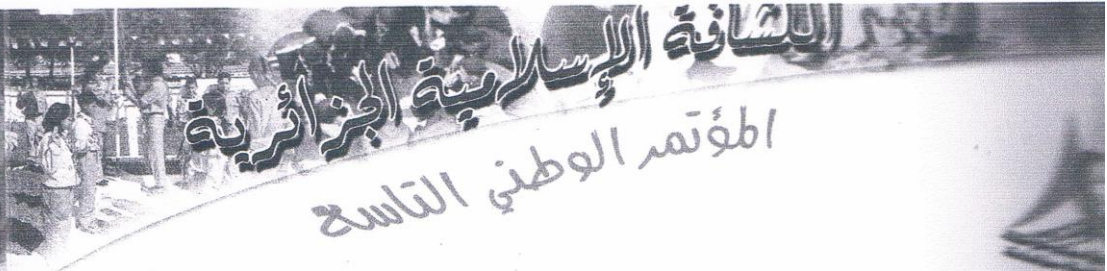 الكشافة الإسلامية الجزائرية
المؤتمر الوطني التاسع